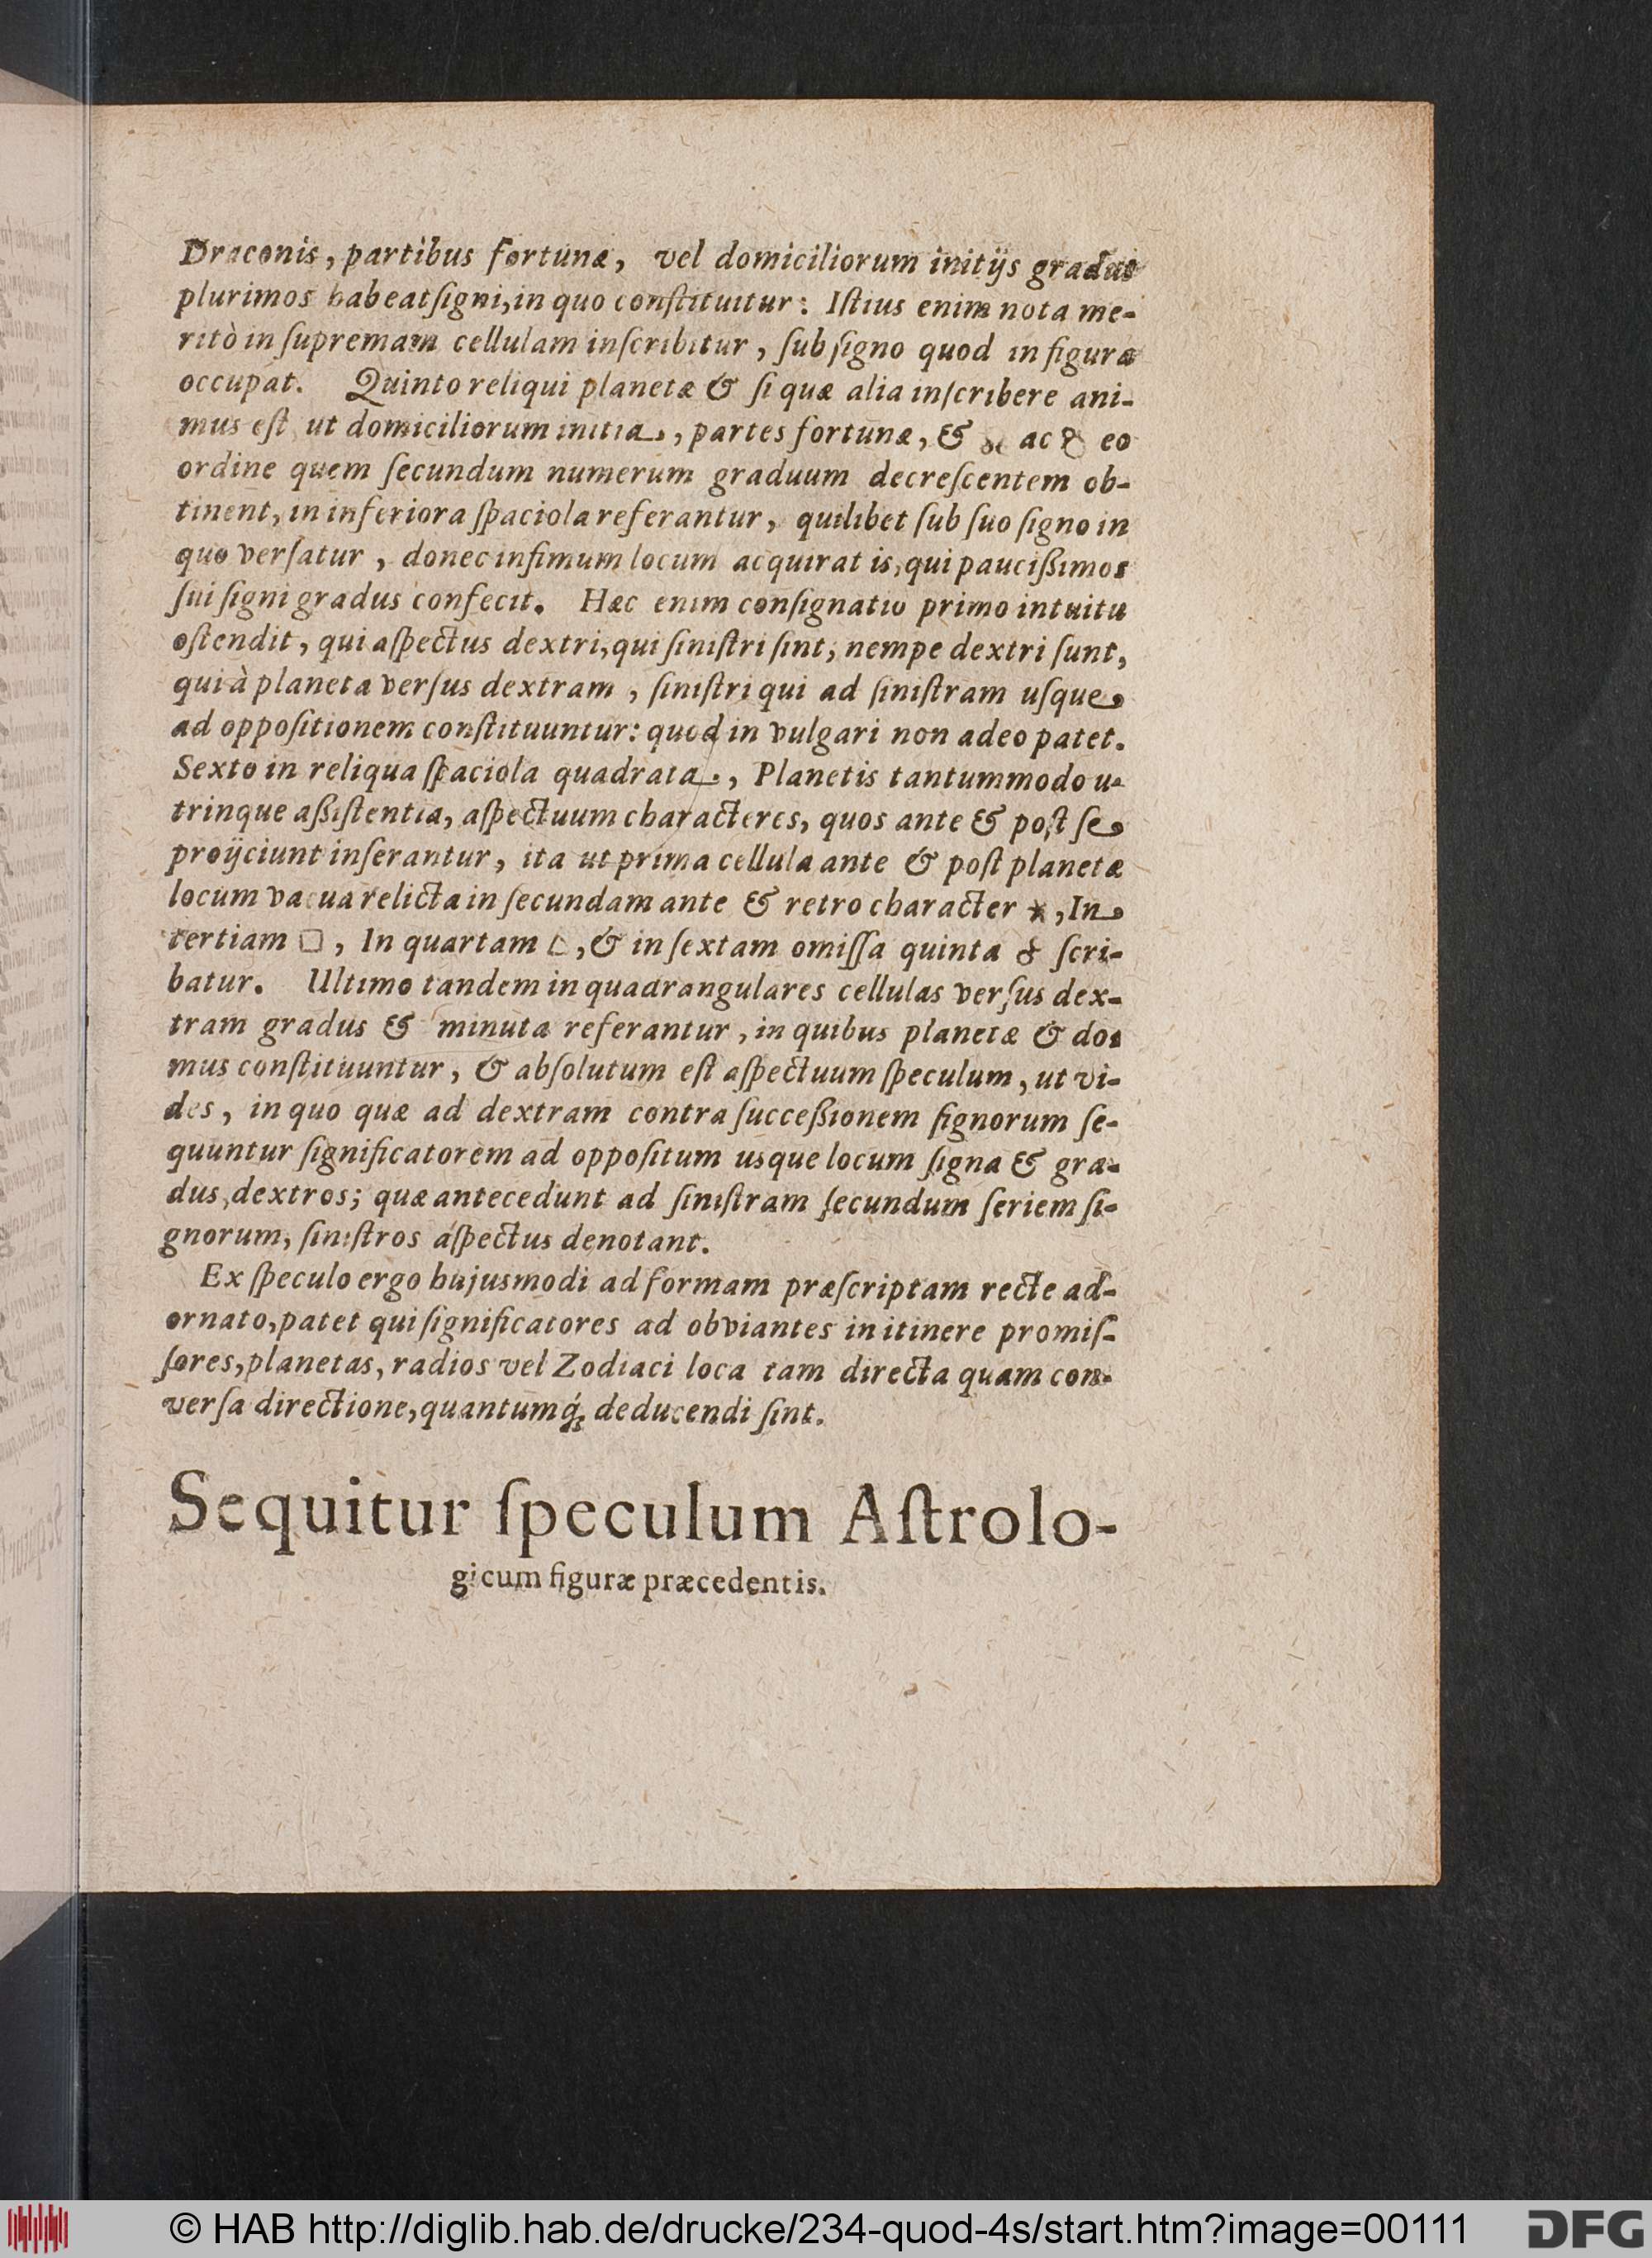 Draconis, partibus fortunæ, vel domiciliorum initijs gradus
plurimos habeat ſigni, in quo conſtituitur: Iſtius enim nota me-
ritò in ſupremam cellulam inſcribitur, ſub ſigno quod in figura
occupat. Quinto reliqui planetæ & ſi quæ alia inſcribere ani-
mus eſt ut domiciliorum initia, partes fortunæ, & ☊ ac ☋ eo
ordine quem ſecundum numerum graduum decreſcentem ob-
tinent, in inferiora ſpaciola referantur, quilibet ſub ſuo ſigno in
quo verſatur, donec infimum locum acquirat is, qui pauciſſimos
ſui ſigni gradus confecit. Hæc enim conſignatio primo intuitu
oſtendit, qui aſpectus dextri, qui ſiniſtri ſint; nempe dextri ſunt,
qui à planeta verſus dextram, ſiniſtri qui ad ſiniſtram uſque
ad oppoſitionem conſtituuntur: quod in vulgari non adeo patet.
Sexto in reliqua ſpaciola quadrata, Planetis tantummodo u-
trinque aßiſtentia, aſpectuum characteres, quos ante & poſt ſe
proijciunt inſerantur, ita ut prima cellula ante & poſt planetæ
locum vacua relicta in ſecundam ante & retro character ⚹, In
tertiam □, In quartam △, & in ſextam omiſſa quinta ☍ ſcri-
batur. Ultimo tandem in quadrangulares cellulas verſus dex-
tram gradus & minuta referantur, in quibus planetæ & do-
mus conſtituuntur, & abſolutum eſt aſpectuum ſpeculum, ut vi-
des, in quo quæ ad dextram contra ſucceßionem ſignorum ſe-
quuntur ſignificatorem ad oppoſitum usque locum ſigna & gra-
dus, dextros; quæ antecedunt ad ſiniſtram ſecundum ſeriem ſi-
gnorum, ſiniſtros aſpectus denotant.
Ex ſpeculo ergo hujusmodi ad formam præſcriptam recte ad-
ornato, patet qui ſignificatores ad obviantes in itinere promiſ-
ſores, planetas, radios vel Zodiaci loca tam directa quam con-
verſa directione, quantumq́; deducendi ſint.
Sequitur ſpeculum Aſtrolo-
gicum figuræ præcedentis.
© HAB http://diglib.hab.de/drucke/234-quod-4s/start.htm?image=00111
DFG